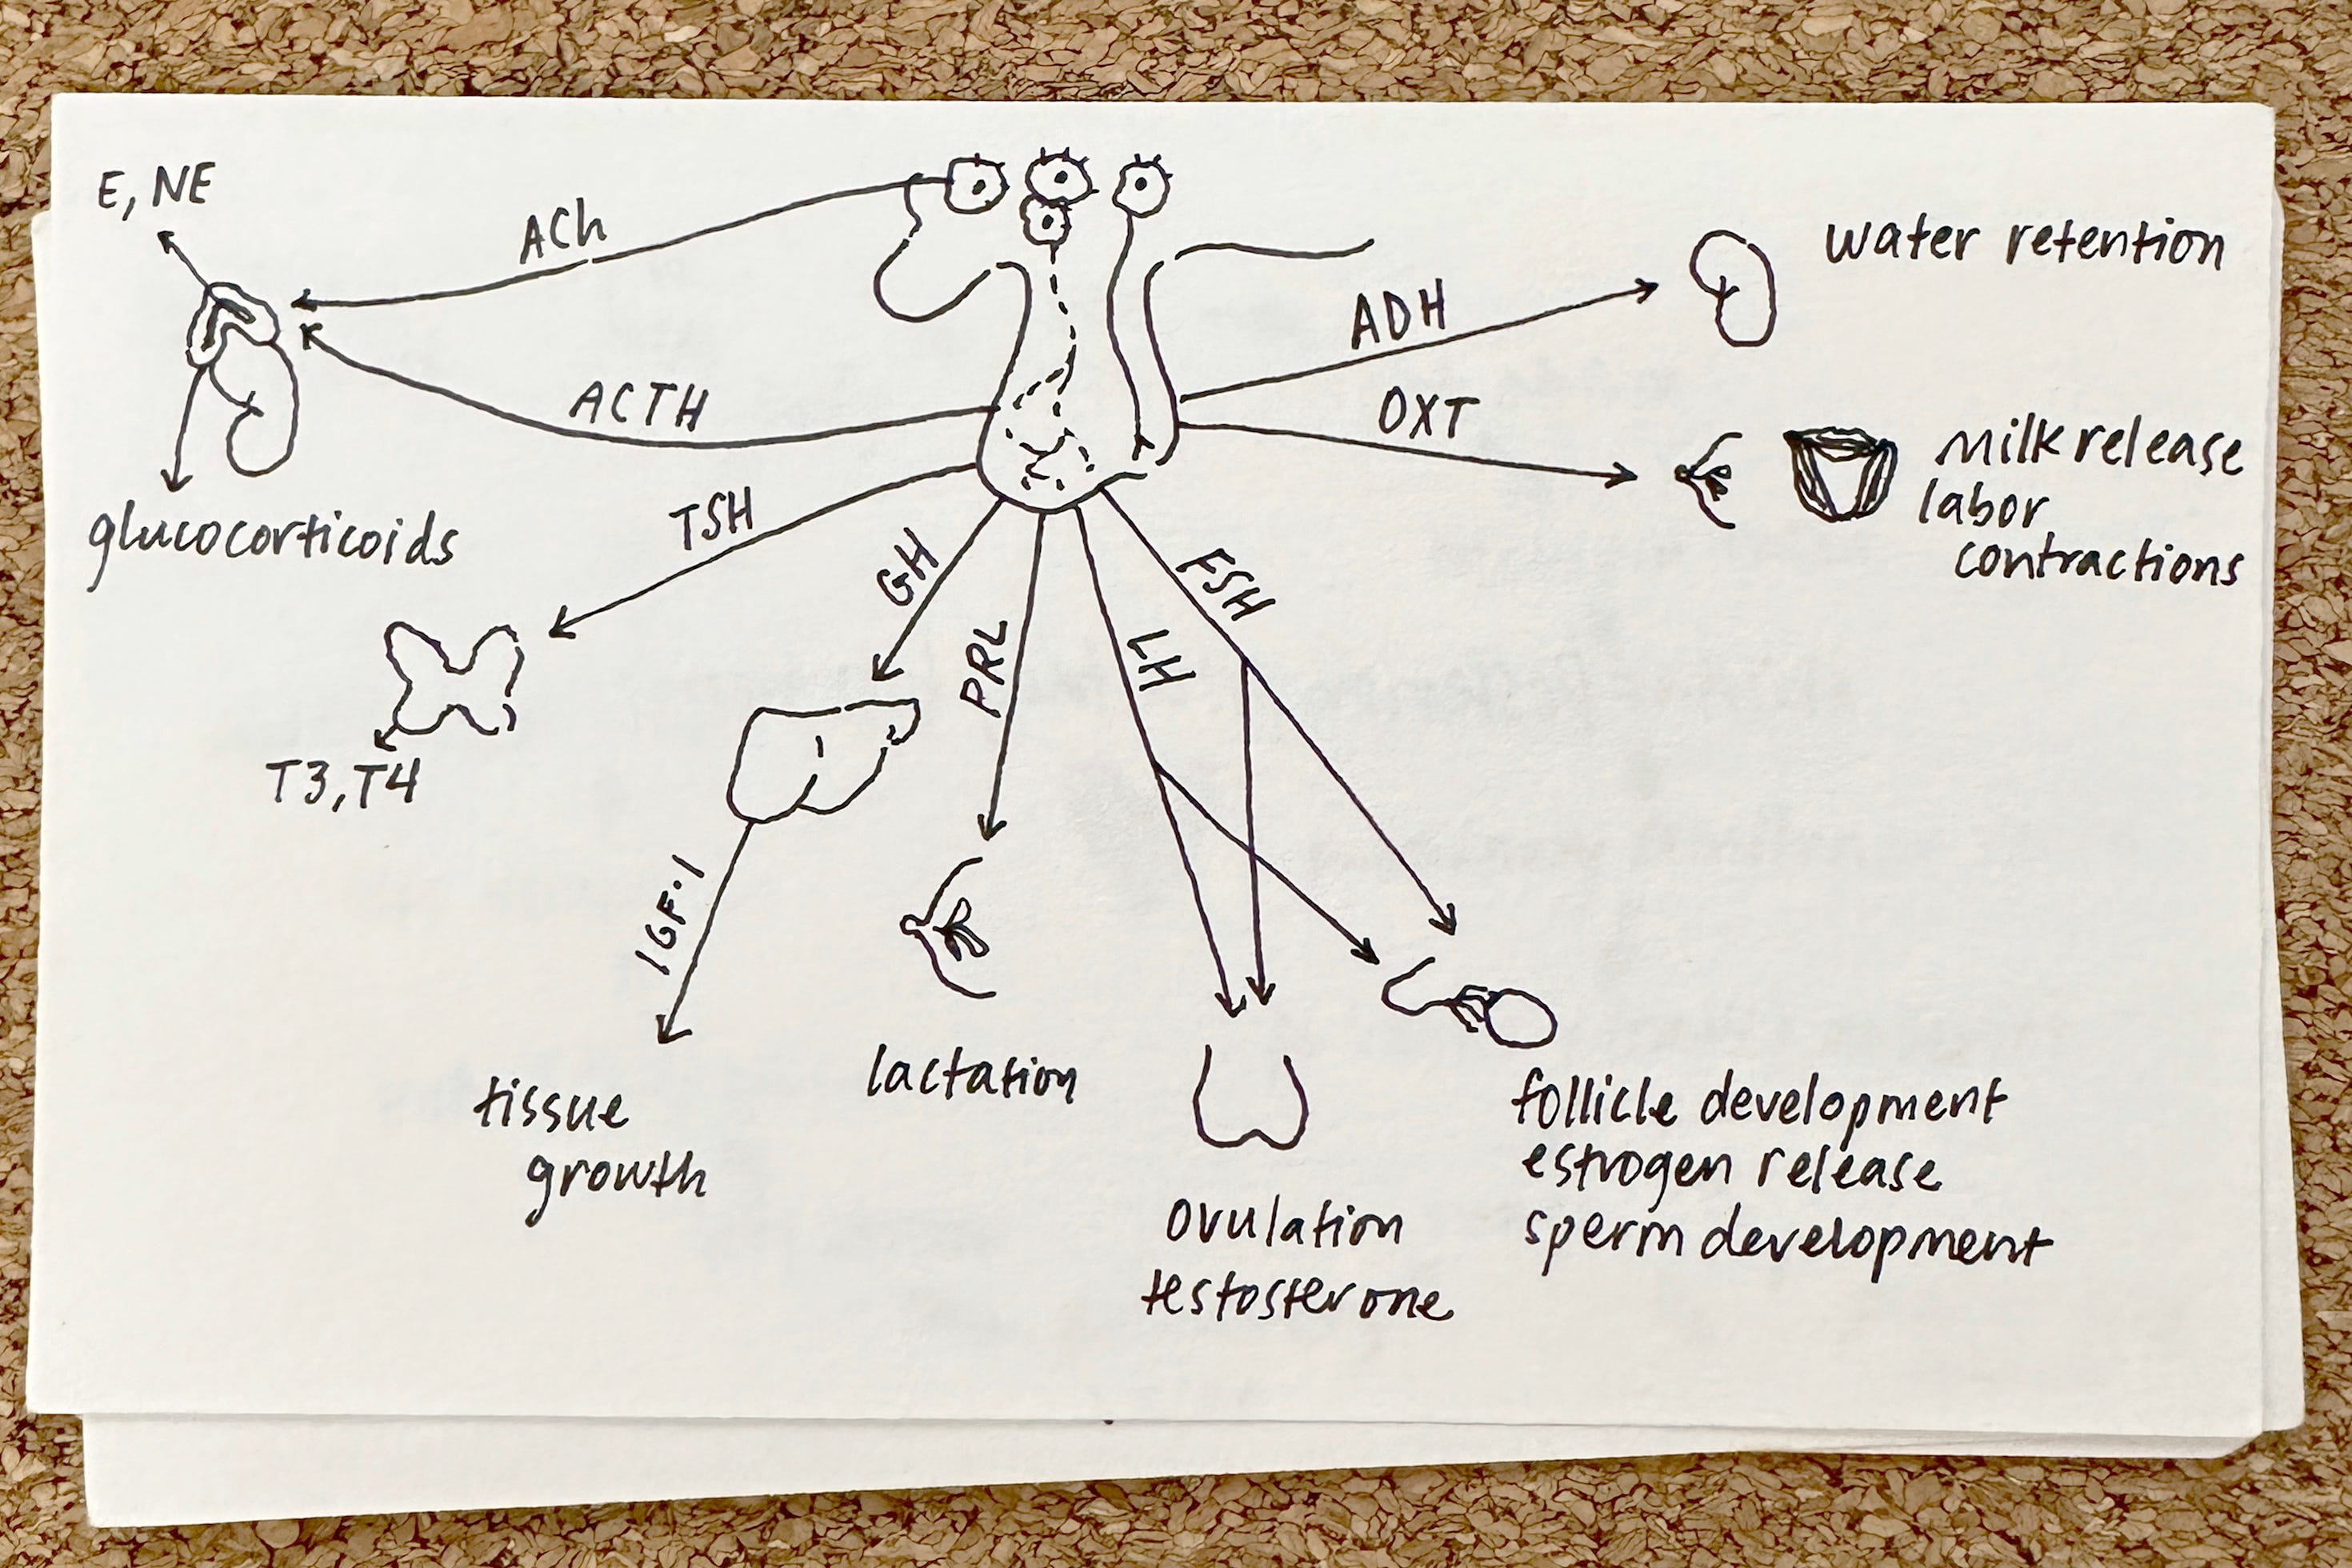 E, NE
ACh
water retention
ADH
ACTH
OXT
milk release
labor
contractions
glucocorticoids
TSH
GH
PRL
LH
FSH
T3, T4
IGF-1
tissue
growth
lactation
ovulation
testosterone
follicle development
estrogen release
sperm development